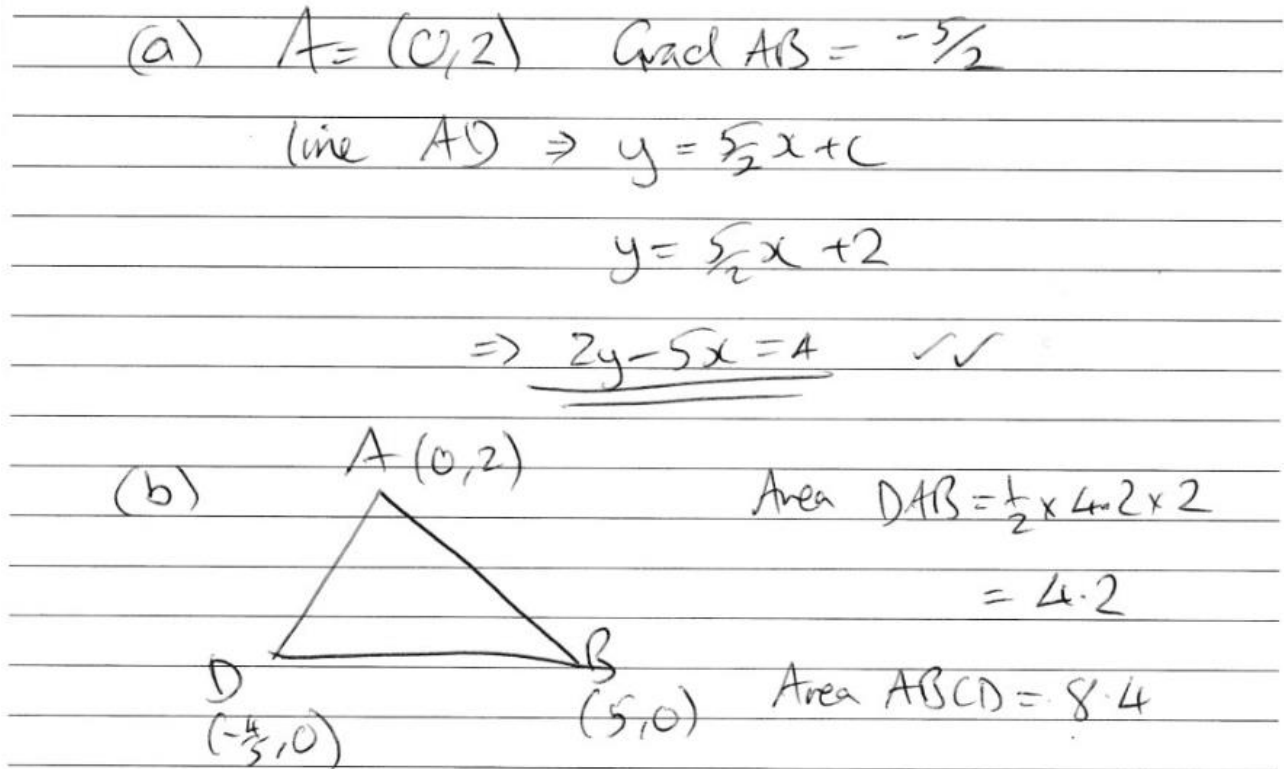 (a) A = (0,2) Grad AB = -5/2
line AD ⇒ y = 5/2 x + c
y = 5/2 x + 2
⇒ 2y - 5x = 4 ✓✓
(b) A (0,2)
Area DAB = 1/2 × 4.2 × 2
= 4.2
D B
(-4/5, 0) (5,0)
Area ABCD = 8.4